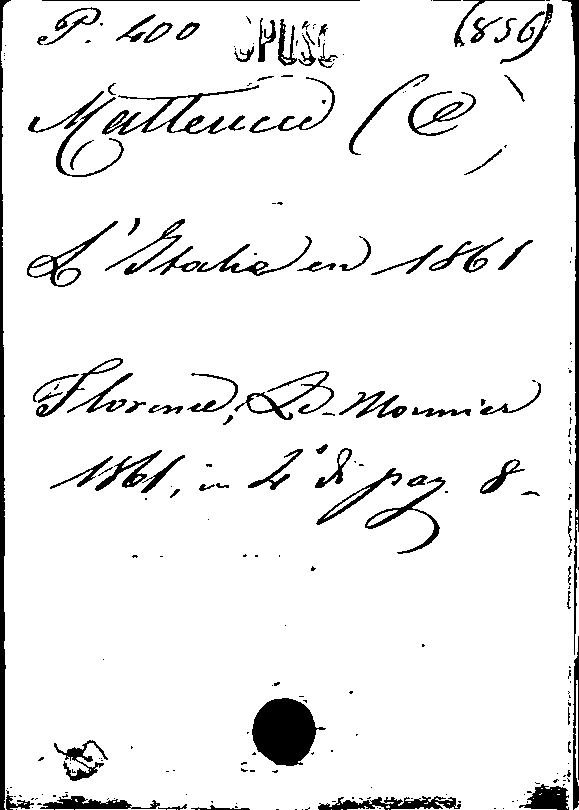 P. 400 OPUSC (856)
Matteucci (C)
L'Italie en 1861
Florence, Le-Monnier
1861, in 4° di pag. 8-